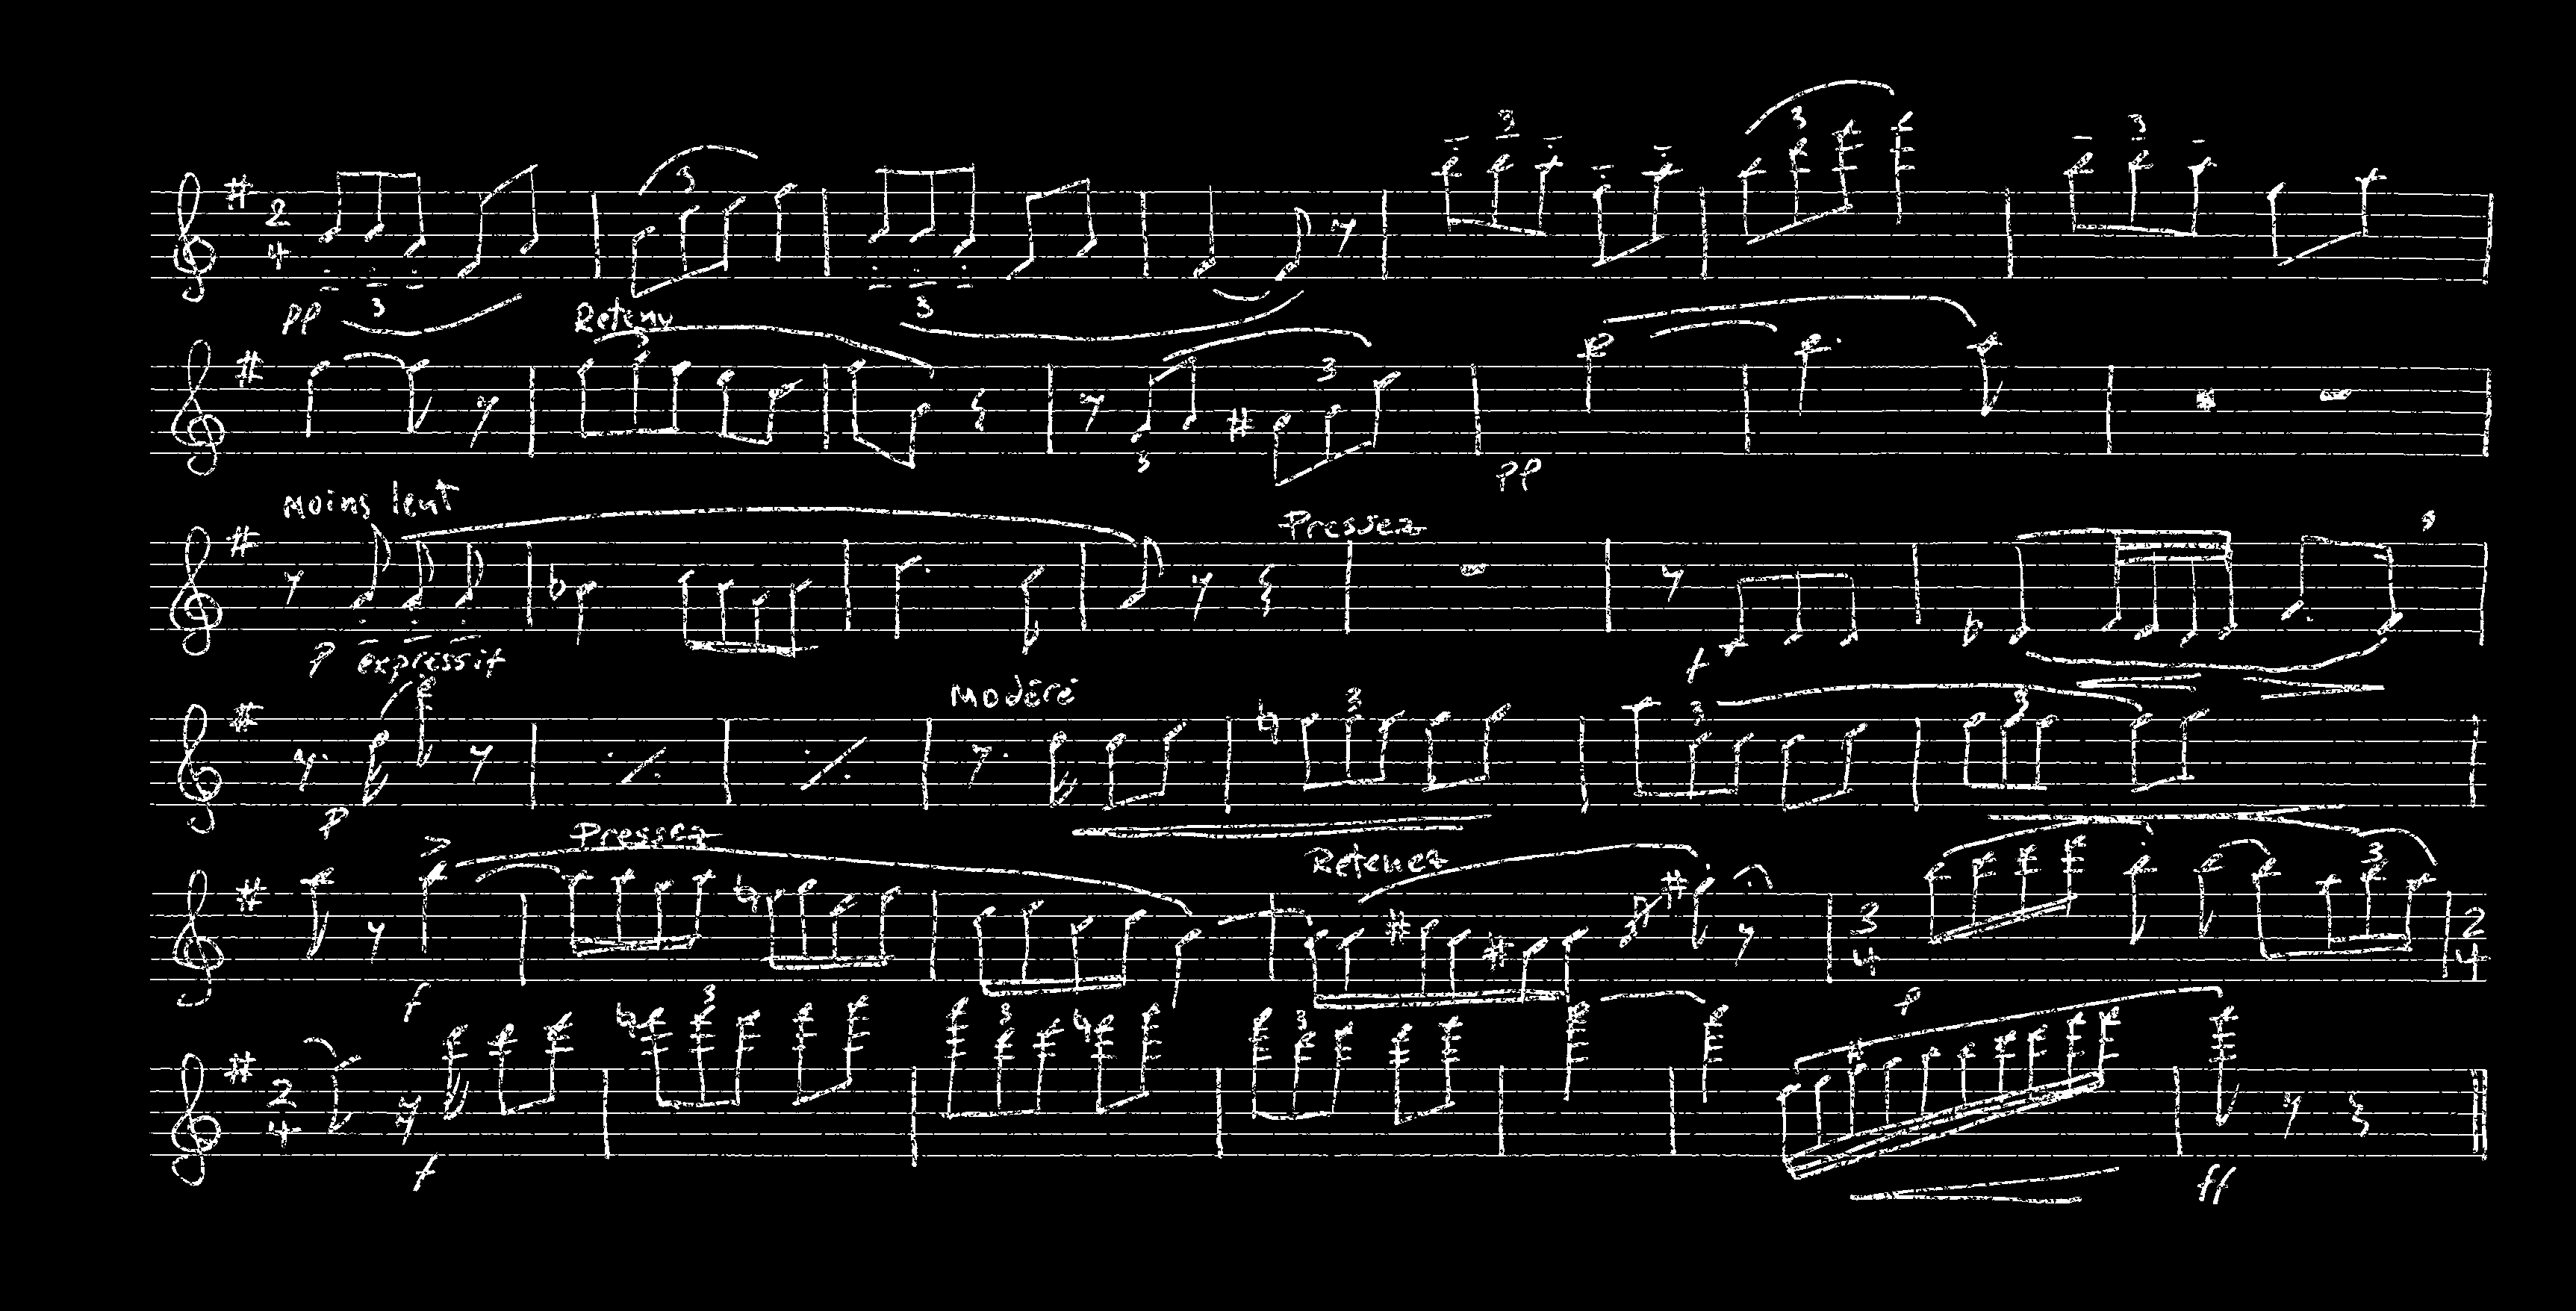 2 4 3 3 3 3 3
pp 3 Retenu 3
3 3
3 pp
Moins lent Pressez
p expressif f
Modéré 3 3 3
p
Pressez Retenez 3
3 4 2 4
f 3 p
2 4 3 3
f ff